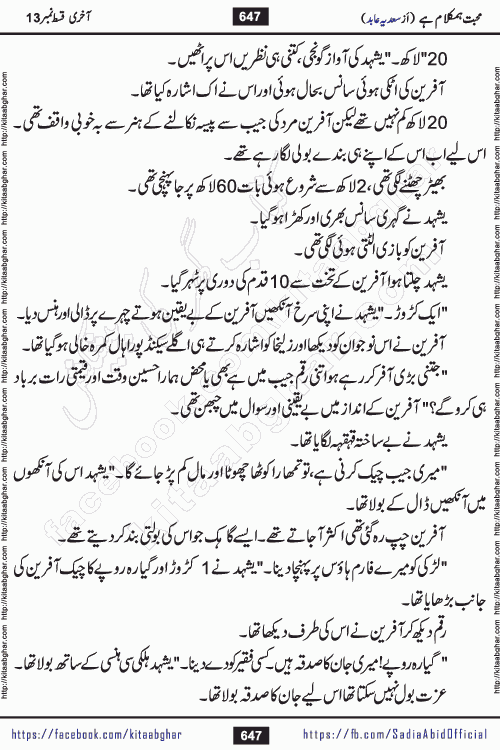 محبت ہمکلام ہے (از سعدیہ عابد) 647 آخری قسط نمبر 13
20" لاکھ۔" یشہد کی آواز گونجی، کتنی ہی نظریں اس پر اٹھیں۔
آفرین کی اٹکی ہوئی سانس بحال ہوئی اور اس نے اک اشارہ کیا تھا۔
20 لاکھ کم نہیں تھے لیکن آفرین مرد کی جیب سے پیسہ نکالنے کے ہنر سے بہ خوبی واقف تھی۔
اس لیے اب اس کے اپنے ہی بندے بولی لگا رہے تھے۔
بھیڑ چھٹنے لگی تھی، 2 لاکھ سے شروع ہوئی بات 60 لاکھ پر جا پہنچی تھی۔
یشہد نے گہری سانس بھری اور کھڑا ہو گیا۔
آفرین کو بازی الٹتی ہوئی لگی تھی۔
یشہد چلتا ہوا آفرین کے تخت سے 10 قدم کی دوری پر ٹھہر گیا۔
"ایک کڑوڑ۔" یشہد نے اپنی سرخ آنکھیں آفرین کے بے یقین ہوتے چہرے پر ڈالی اور ہنس دیا۔
آفرین نے اس نوجوان کو دیکھا اور زلیخا کو اشارہ کرتے ہی اگلے سیکنڈ پورا ہال کمرہ خالی ہو گیا تھا۔
"جتنی بڑی آفر کر رہے ہو اتنی رقم جیب میں ہے بھی یا محض ہمارا حسین وقت اور قیمتی رات برباد
ہی کرو گے؟" آفرین کے انداز میں بے یقینی اور سوال میں چبھن تھی۔
یشہد نے بے ساختہ قہقہہ لگایا تھا۔
"میری جیب چیک کرنی ہے، تو تمھارا کوٹھا چھوٹا اور مال کم پڑ جائے گا۔" یشہد اس کی آنکھوں
میں آنکھیں ڈال کے بولا تھا۔
آفرین چپ رہ گئی تھی اکثر آ جاتے تھے۔ ایسے گاہک جو اس کی بولتی بند کر دیتے تھے۔
"لڑکی کو میرے فارم ہاؤس پر پہنچا دینا۔" یشہد نے 1 کڑوڑ اور گیارہ روپے کا چیک آفرین کی
جانب بڑھایا تھا۔
رقم دیکھ کر آفرین نے اس کی طرف دیکھا تھا۔
"گیارہ روپے! میری جان کا صدقہ ہیں۔ کسی فقیر کو دے دینا۔" یشہد ہلکی سی ہنسی کے ساتھ بولا تھا۔
عزت بول نہیں سکتا تھا اس لیے جان کا صدقہ بولا تھا۔
https://facebook.com/kitaabghar 647 https://fb.com/SadiaAbidOfficial
http://kitaabghar.com http://kitaabghar.com http://kitaabghar.com http://kitaabghar.com